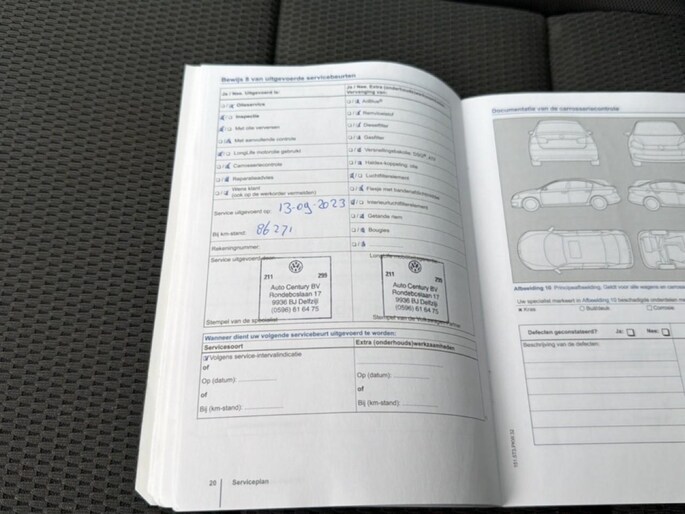 Bewijs 8 van uitgevoerde servicebeurten
Ja / Nee Uitgevoerd is:
Olieservice
Inspectie
Met olie verversen
Met aanvullende controle
LongLife motorolie gebruikt
Carrosseriecontrole
Reparatieadvies
Wens klant
(ook op de werkorder vermelden)
Service uitgevoerd op: 13-09-2023
Bij km-stand: 86271
Rekeningnummer:
Service uitgevoerd door:
211 295
Auto Century BV
Rondebcslaan 17
9936 BJ Delfzijl
(0596) 61 64 75
Stempel van de specialist
Ja / Nee Extra (onderhouds)werkzaamheden
Vervanging van:
AdBlue®
Remvloeistof
Dieselfilter
Gasfilter
Haldex-koppeling: olie
Luchtfilterelement
Interieurluchtfilterelement
Getande riem
Bougies
211 295
Auto Century BV
Rondebcslaan 17
9936 BJ Delfzijl
(0596) 61 64 75
Stempel van de
Wanneer dient uw volgende servicebeurt uitgevoerd te worden:
Servicesoort
Volgens service-intervalindicatie
of
Op (datum):
of
Bij (km-stand):
Extra (onderhouds)werkzaamheden
Op (datum):
of
Bij (km-stand):
28 Serviceplan
Documentatie van de carrosseriecontrole
Afbeelding 10 Principeafbeelding. Geldt voor alle wagens en
Uw specialist markeert in Afbeelding 10 beschadigde onderdelen
Kras Buil/deuk Corrosie
Defecten geconstateerd? Ja: Nee:
Beschrijving van de defecten: